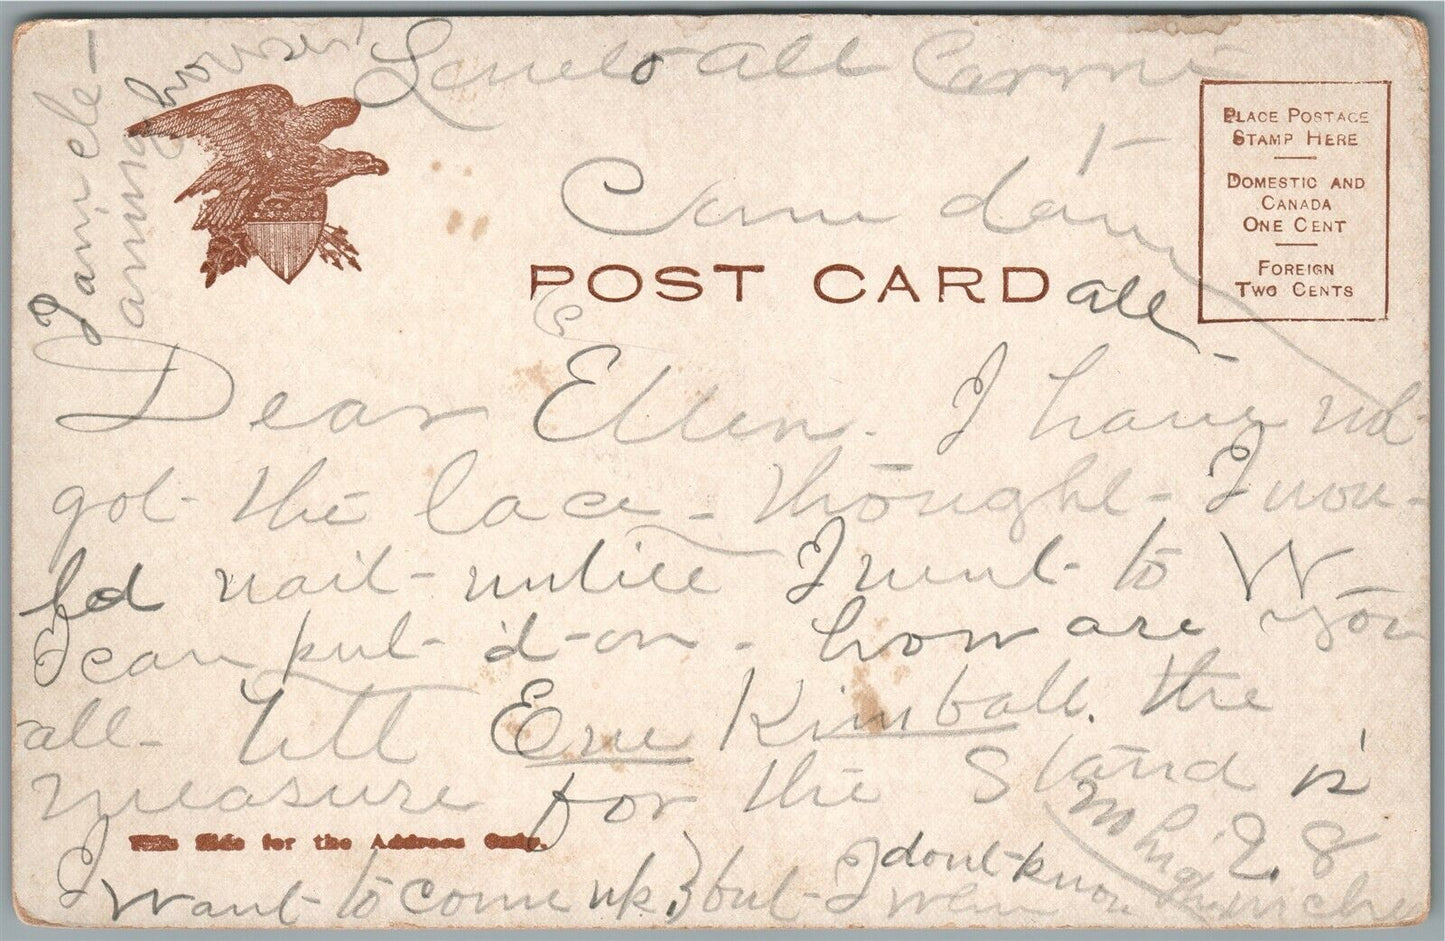 I am cle-
aning house.
Love to all
Come down
all-
PLACE POSTAGE
STAMP HERE
DOMESTIC AND
CANADA
ONE CENT
FOREIGN
TWO CENTS
POST CARD
Dear Ellen. I have not
got the lace - thought I wou-
ld wait untill I went to W
I can put it on. how are you
all- tell Erne Kimball. the
measure for the Stand is
This Side for the Address Only.
28
I want to come up, but I dont know when